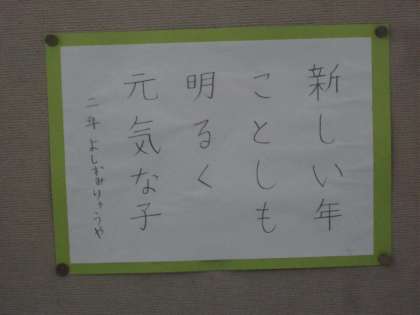 新しい年
ことしも
明るく
元気な子
二年 よしずみりょうや